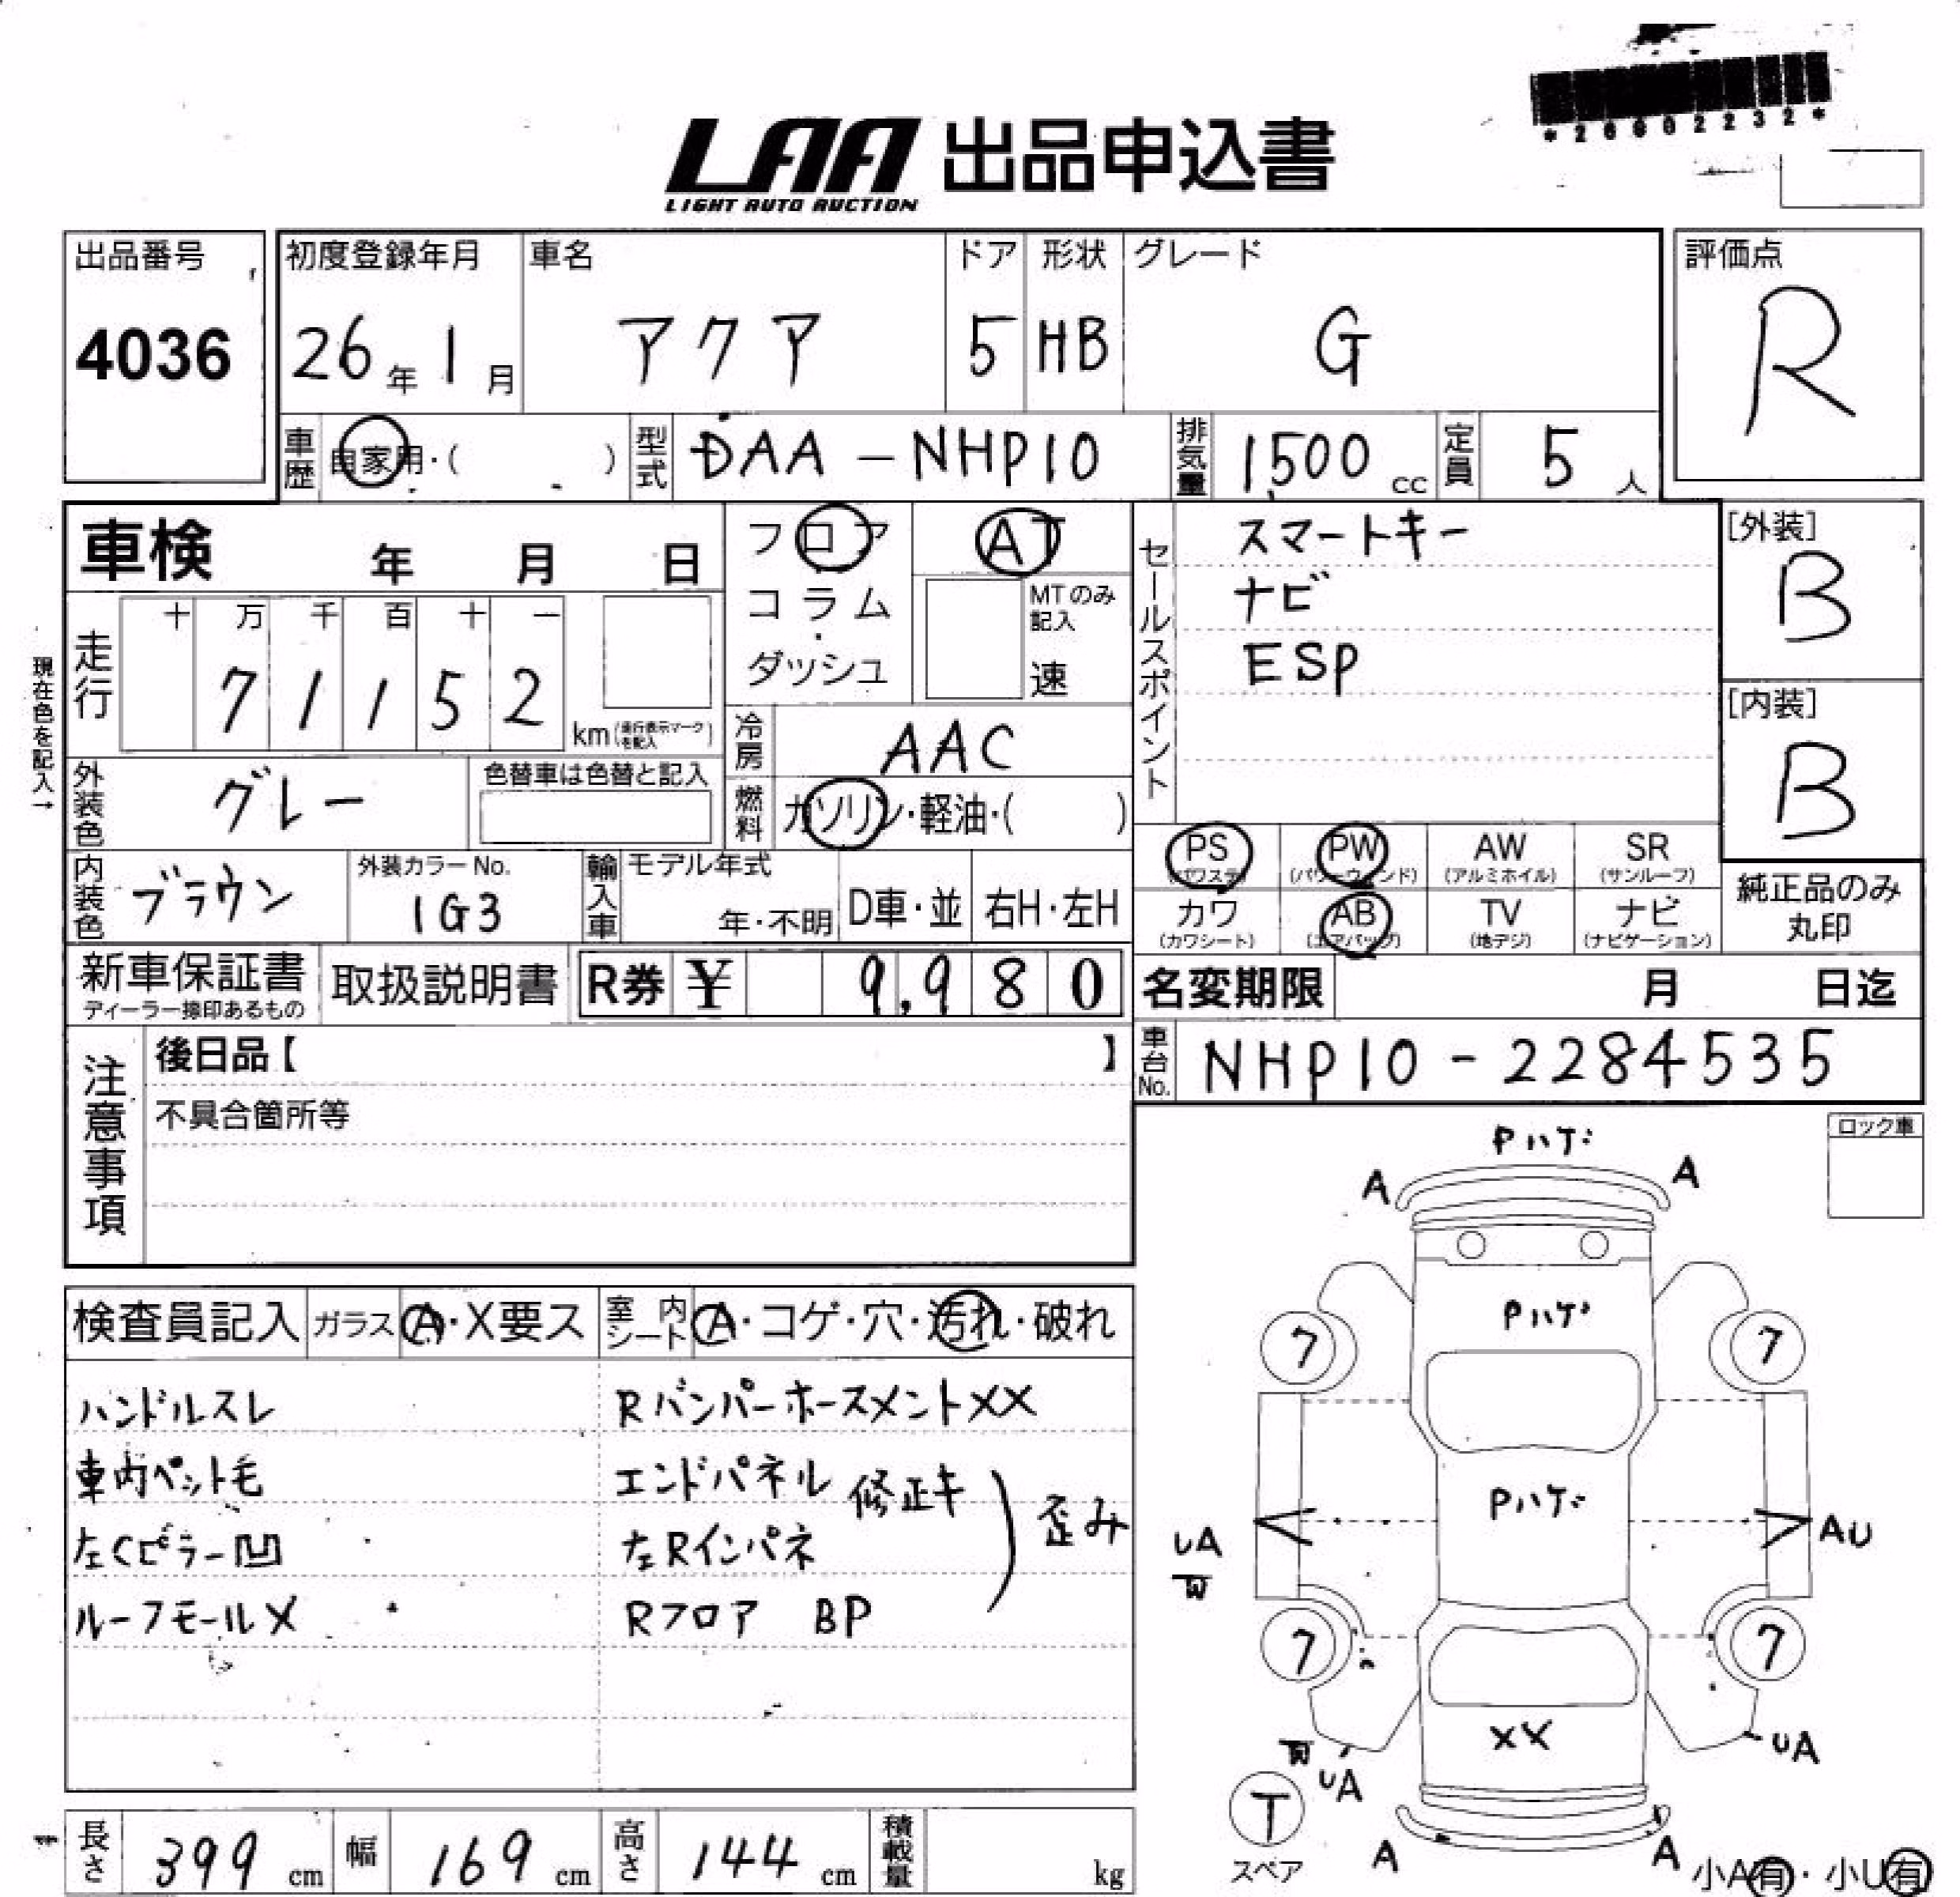 *26002232*
LAA 出品申込書
LIGHT AUTO AUCTION
出品番号 初度登録年月 車名 ドア 形状 グレード 評価点
4036 26年 1月 アクア 5 HB G R
車歴 自家用・( ) 型式 DAA-NHP10 排気量 1500cc 定員 5人
車検 年 月 日 フロア AT セールスポイント スマートキー [外装]
コラム MTのみ記入 ナビ B
ダッシュ 速 ESP
現在色を記入→
走行 十 万 千 百 十 一
7 1 1 5 2 km (走行表示マークを記入) 冷房 AAC [内装]
外装色 グレー 色替車は色替と記入 燃料 ガソリン・軽油・( ) B
PS (パワステ) PW (パワーウィンド) AW (アルミホイル) SR (サンルーフ)
内装色 ブラウン 外装カラーNo. 1G3 輸入車 モデル年式 年・不明 D車・並 右H・左H
カワ (カワシート) AB (エアバッグ) TV (地デジ) ナビ (ナビゲーション) 純正品のみ丸印
新車保証書 取扱説明書 R券 ¥ 9,980 名変期限 月 日迄
ディーラー捺印あるもの
注意事項 後日品【 】 車台No. NHP10-2284535
不具合箇所等 ロック車
Pハゲ
A A
検査員記入 ガラス A・X要ス 室内シート A・コゲ・穴・汚れ・破れ
Pハゲ
7 7
ハンドルスレ RバンパーホースメントXX
車内ペット毛 エンドパネル 修正キ 歪み
Pハゲ
左Cピラー凹 左Rインパネ
UA AU
W
ルーフモールX Rフロア BP
7 7
XX
W UA UA
T
スペア
A A
小A有・小U有
長さ 399cm 幅 169cm 高さ 144cm 積載量 kg